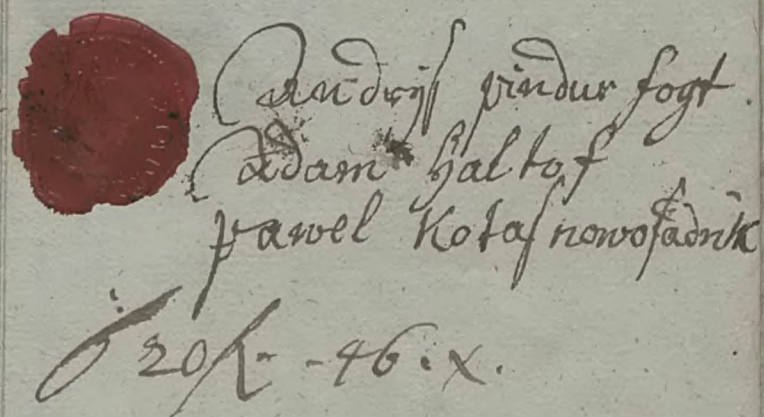 Andrys pindur fogt.
Adam Haltof
Pawel Kotas nowosadnik
20 f - 46 . x .